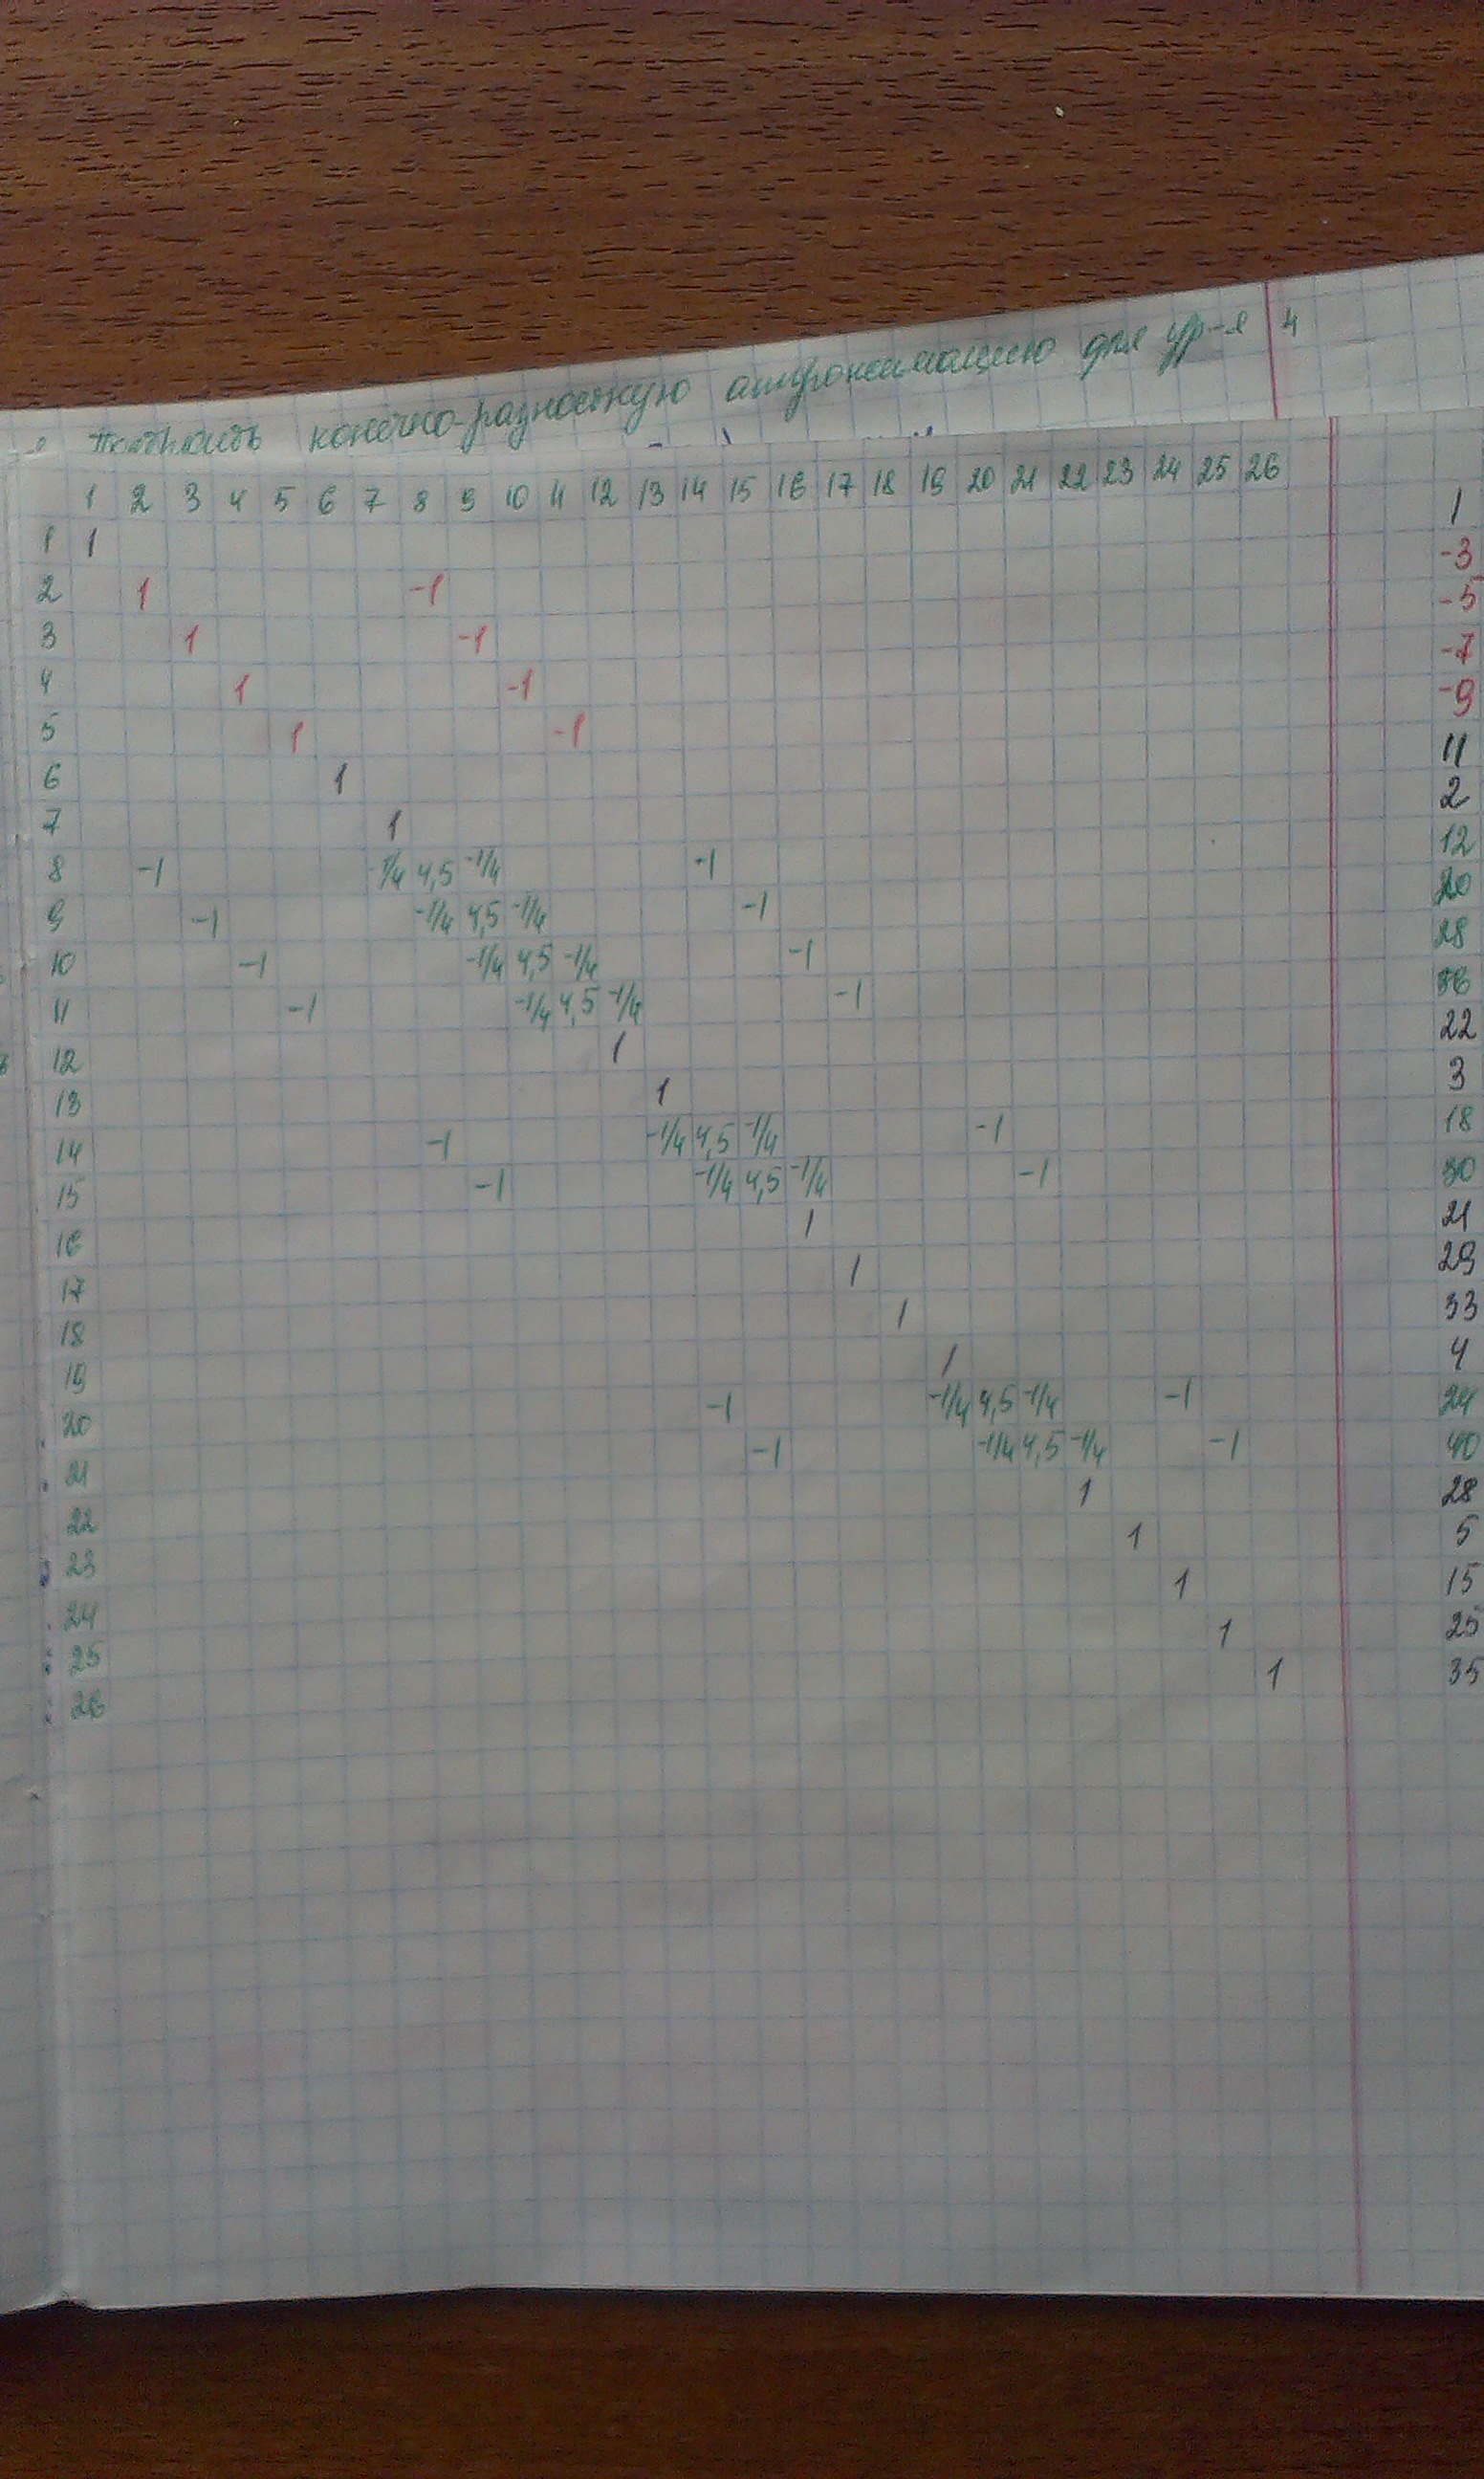 конечно-разностную аппроксимацию для ур-я 4
1 2 3 4 5 6 7 8 9 10 11 12 13 14 15 16 17 18 19 20 21 22 23 24 25 26
1 1 1
2 1 -1 -3
3 1 -1 -5
4 1 -1 -7
5 1 -1 -9
6 1 11
7 1 2
8 -1 -1/4 4,5 -1/4 -1 12
9 -1 -1/4 4,5 -1/4 -1 20
10 -1 -1/4 4,5 -1/4 -1 28
11 -1 -1/4 4,5 -1/4 -1 36
12 1 22
13 1 3
14 -1 -1/4 4,5 -1/4 -1 18
15 -1 -1/4 4,5 -1/4 -1 30
16 1 21
17 1 29
18 1 33
19 1 4
20 -1 -1/4 4,5 -1/4 -1 24
21 -1 -1/4 4,5 -1/4 -1 40
22 1 28
23 1 5
24 1 15
25 1 25
26 1 35